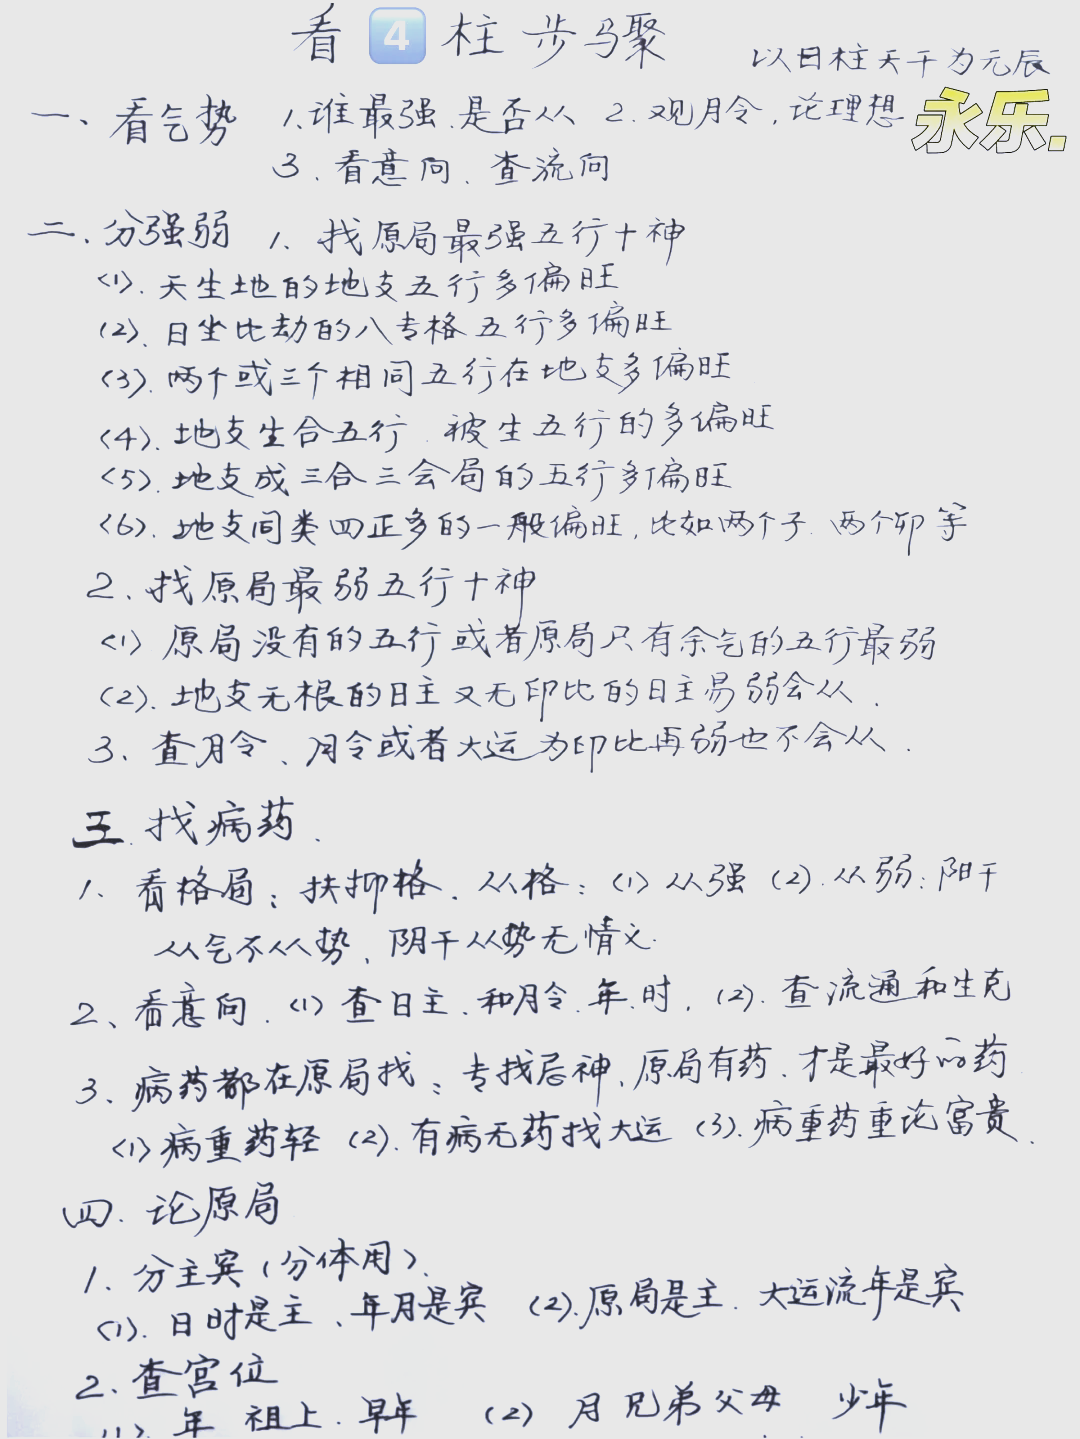 看4柱步骤
以日柱天干为元辰
永乐.
一、看气势 1、谁最强、是否从 2. 观月令，论理想
3. 看意向、查流向
二、分强弱 1、找原局最强五行十神
(1). 天生地的地支五行多偏旺
(2). 日坐比劫的八专格五行多偏旺
(3). 两个或三个相同五行在地支多偏旺
(4). 地支生合五行、被生五行的多偏旺
(5). 地支成三合三会局的五行多偏旺
(6). 地支同类四正多的一般偏旺, 比如两个子、两个卯等
2. 找原局最弱五行十神
(1) 原局没有的五行或者原局只有余气的五行最弱
(2). 地支无根的日主又无印比的日主易弱会从.
3、查月令、月令或者大运为印比再弱也不会从.
三. 找病药.
1、看格局: 扶抑格、从格: (1) 从强 (2). 从弱: 阳干
从气不从势、阴干从势无情义.
2、看意向. (1) 查日主、和月令、年、时, (2). 查流通和生克
3、病药都在原局找: 专找忌神、原局有药、才是最好的药
(1) 病重药轻 (2). 有病无药找大运 (3). 病重药重论富贵.
四. 论原局
1. 分主宾(分体用).
(1). 日时是主、年月是宾 (2). 原局是主. 大运流年是宾
2. 查宫位
(1). 年 祖上. 早年 (2) 月 兄弟父母 少年